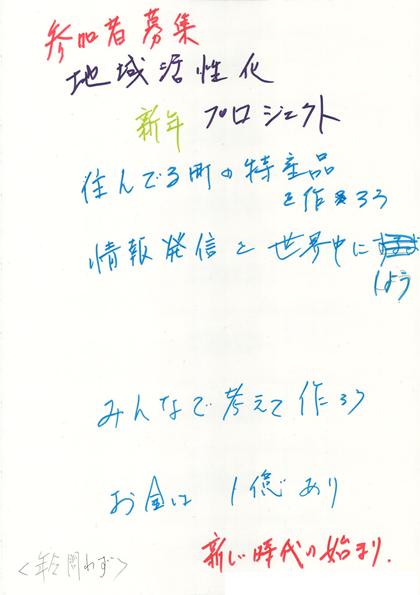 参加者募集
地域活性化
新年 プロジェクト
住んでる町の特産品
を作ろう
情報発信を世界中に
しよう
みんなで考えて作ろう
お金は 1億あり
新しい時代の始まり.
<年令問わず>